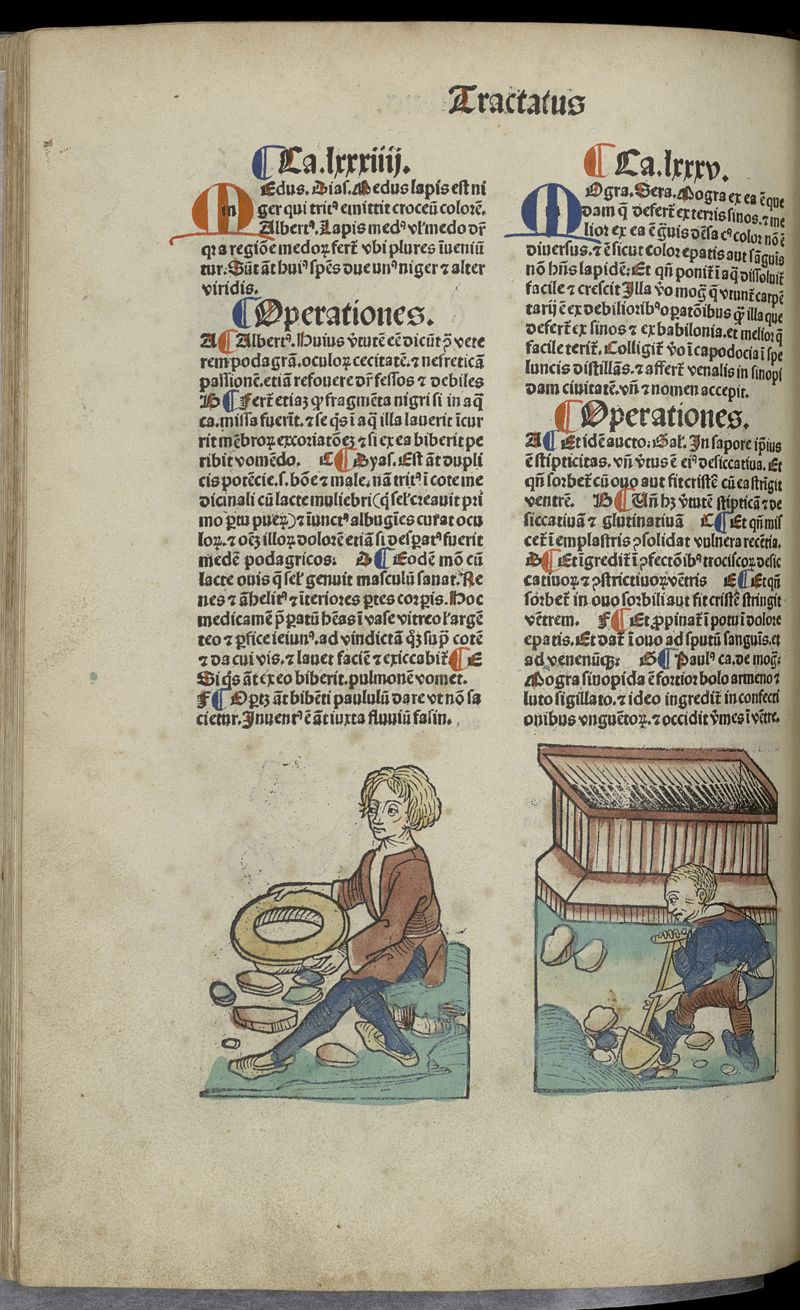 Tractatus
¶ Ca.lxxxiiij.
MEdus. Dias. Medus lapis est ni
ger qui tritꝰ emittit croceū colorē.
Albertꝰ. Lapis medꝰ vl' medo dr̄
qr a regiōe medoꝝ fert̄ vbi plures īueniū
tur. Sūt āt huiꝰ spēs due unꝰ niger ⁊ alter
viridis.
¶ Operationes.
A ¶ Albertꝰ. Huius v̄tutē eē dicūt ꝓ vete
rem podagrā. oculoꝝ cecitatē. ⁊ nefreticā
passionē. etiā refouere dr̄ fessos ⁊ debiles
B ¶ Fert̄ etiaꝫ ꝙ fragmēta nigri si in aq̄
ca. missa fuerīt. ⁊ se q̄s ī aq̄ illa lauerit īcur
rit mēbroꝝ excoriatōeꝫ ⁊ si ex ea biberit pe
ribit vomēdo. C ¶ Dyas. Est āt dupli
cis potēcie. s. bōe ⁊ male. nā tritꝰ ī cote me
dicinali cū lacte muliebri (q̄ sel' creauit pri
mo ꝑtu pueꝝ) ⁊ iunctꝰ albugīes curat ocu
loꝝ. ⁊ oēꝫ illoꝝ dolorē etiā si despatꝰ fuerit
medē podagricos. D ¶ Eodē mō cū
lacte ouis q̄ sel' genuit masculū sanat. Re
nes ⁊ āhelitꝰ ⁊ īteriores ꝑtes corꝑis. Hoc
medicamē p̄paratū hēas ī vase vitreo l' argē
teo ⁊ ꝑfice ieiunꝰ. ad vindictā q̄ꝫ suꝑ cotē
⁊ da cui vis. ⁊ lauet faciē ⁊ exiccabit̄ ¶ E
Si q̄s āt ex eo biberit. pulmonē vomet.
F ¶ Oꝑtꝫ āt bibēti paululū dare vt nō sa
cietur. Inuentꝰ ē āt iuxta fluuiū fasin.
¶ Ca.lxxxv.
MOgra. Sera. Mogra ex ea ē que
dam q̄ defert̄ ex terris sinos. ⁊ me
lior ex ea ē ḡuis dēsa cꝰ color nō ē
diuersus. ⁊ ē sicut color epatis aut sāguis
nō hn̄s lapidē. Et qn̄ ponit̄ ī aq̄ dissoluit̄
facile ⁊ crescit Illa v̄o mog̃ q̄ vtunt̄ carpē
tarij ē ex debilioribꝰ oꝑatōibus q̄ illa que
defert̄ ex sinos ⁊ ex babilonia. et melior q̄
facile terit̄. Colligit̄ v̄o ī capodocia ī spe
luncis distillās. ⁊ affert̄ venalis in sinopi
dam ciuitatē. vn̄ ⁊ nomen accepit.
¶ Operationes.
A ¶ Et idē aucto. Gal'. In sapore ip̄ius
ē stipticitas. vn̄ v̄tus ē eiꝰ desiccatiua. Et
qn̄ sorbet̄ cū ouo aut fit cristē cū ea strīgit
ventrē. B ¶ Un̄ hꝫ v̄tutē stipticā ⁊ de
siccatiuā ⁊ glutinatiuā C ¶ Et qn̄ mis
cet̄ ī emplastris ꝯsolidat vulnera recētia.
D ¶ Et īgredit̄ ī ꝯfectōibꝰ trociscoꝝ desic
catiuoꝝ ⁊ ꝯstrictiuoꝝ vētris E ¶ Et qn̄
sorbet̄ in ouo sorbili aut fit cristē stringit
vētrem. F ¶ Et ꝓpinat̄ ī potu ī dolore
epatis. Et dat̄ ī ouo ad sputū sanguīs. et
ad venenūqꝫ. G ¶ Paulꝰ ca. de mog̃.
Mogra sinopida ē fortior bolo armeno ⁊
luto sigillato. ⁊ ideo ingredit̄ in confecti
onibus vnguētoꝝ. ⁊ occidit v̄mes ī vētre.